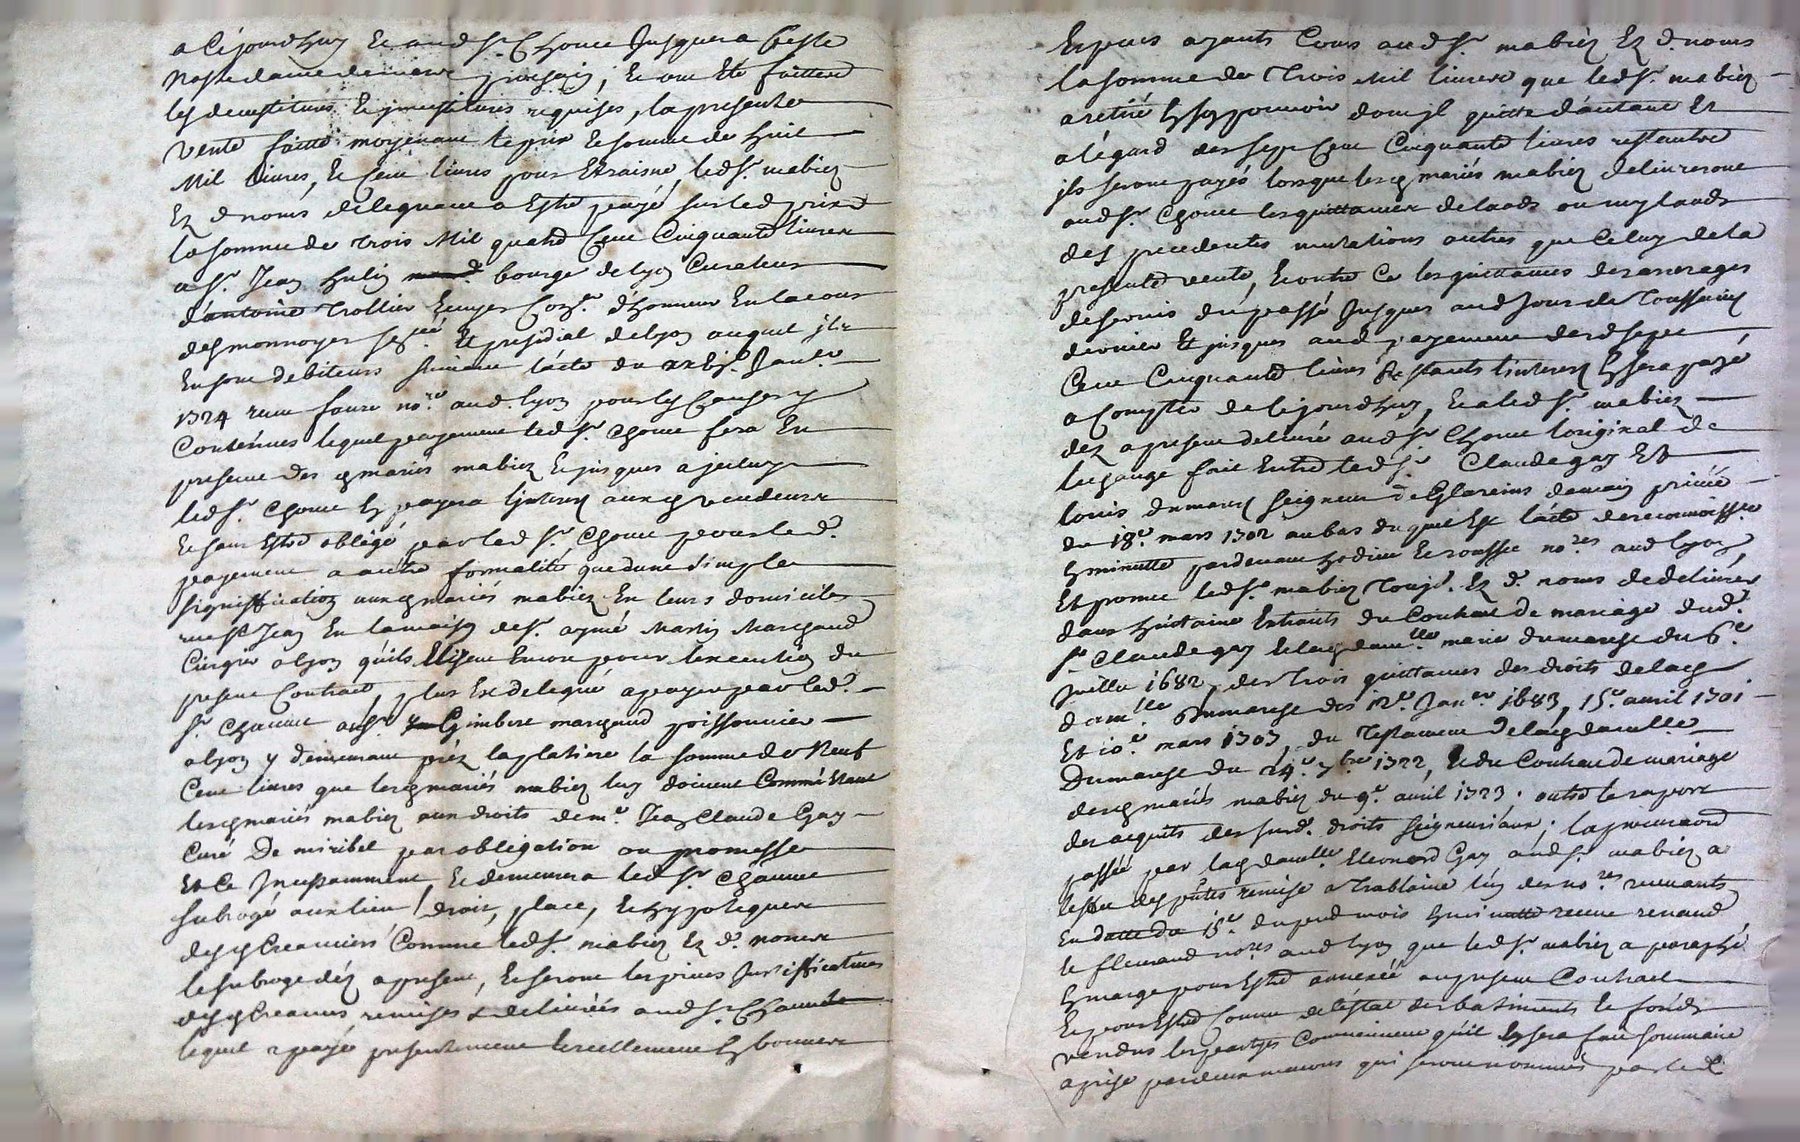 a Cejourdhuy Et aud Sr. Chome Jusques a feste
nostre dame de mars prochain, Et ont Eté faittes
les devestitures Et jnvestitures requises, la presente
vente faitte moyenant le prix Et somme de huit
Mil livres, Et Cent livres pour Etraine, led Sr. mabiez
Ez d noms delegant a Estre payé sur led prix
la somme de trois Mil quatre Cent Cinquante livres
a Sr. Jean hulin bourge de lyon Curateur
d'antoine trollier Ecuyer Conr. d'honneur En la cour
des monnoyes senée. Et presidial de lyon auquel jls
En sont debiteurs suivant l'acte du Janr.
1724 receu no.re aud. lyon pour les Causes y
Contenues lequel payement led Sr. Chome fera En
presence des mariés mabiez Et jusques a jceluy
led Sr. Chome En payera l'jnterest aux vendeurs
Et sans Estre obligé par led Sr. Chome pour led.
payement a autre formalité que d'une simple
signiffication aux mariés mabiez En leurs domicile
rue St Jean En la maison de Sr. aymé Martin Marchand
Cirgier a lyon qu'ils Elisent Encore pour l'execution du
present Contract, plus Est delegué a payer par led.
Sr. Chaume au Sr. Gimbert marchand poissonnier
a lyon y demeurant préz la platiere la somme de Neuf
Cent livres que les mariés mabiez luy doivent Comme Etant
les mariés mabiez aux droits de mr. Jean Claude Gay
Curé De miribel par obligation ou promesse
Et Ce Jncessamment, Et demeurera led Sr. Chaume
subrogé aux lieu, droit, place, Et hypoteques
des Creanciers Comme led Sr. mabiez Ez d. noms
le subroge déz a present, Et seront les pieces Justifficatives
des Creances remises & delivrées aud Sr. Chaume
lequel a payé presentement Et reellement En bonnes
Especes ayants Cours aud Sr. mabiez Ez d. noms
la somme de trois Mil livres que led Sr. mabiez
a retiré En son pouvoir dont jl quitte d'autant Et
a l'egard des sept Cent Cinquante livres restantes
jls seront payés lorsque les mariés mabiez delivreront
aud Sr. Chome les quittances de laods ou mylaods
des precedentes mutations autres que Celuy de la
presente vente, Et outre Ce les quittances des arrerages
de servis du passé Jusques aud Jour de Toussaint
dernier Et jusques aud payement desd sept
Cent Cinquante livres Restants l'interest En sera payé
a Compter de Cejourdhuy, Et a led Sr. mabiez
dez a present delivré aud Sr. Chome l'original de
l'echange fait Entre led Sr. Claude gay Et
louis dumarest seigneur de Glareins de main privée
du 18e. mars 1702 au bas duquel Est l'acte de reconnoissce.
En minutte pardevant hodieu Et roussee no.res aud lyon,
Et promet led Sr. mabiez Ez d. noms de delivrer
dans huictaine Extraits du Contract de mariage dud.
Sr. Claude gay Et lad damlle. marie dumarest du 6e.
Juillet 1682, des trois quittances des droits de lad
damlle. Dumarest des 12e. Janer 1683, 15e. avril 1701
Et 10e. mars 1703, du Testament de lad damlle.
Dumarest du 24e. 7bre 1722, Et du Contract de mariage
des mariés mabiez du 9e. avril 1723. outre le raport
des acquits des susd. droits seigneuriaux; la procuraon
passée par lad damlle Eleonore Gay aud Sr. mabiez a
l'effet des pntes remise a trablaine l'un des no.res recevants
En datte du 15e. du pnt mois En minutte receue renaud
Et flemand no.res aud lyon que led Sr. mabiez a paraphé
En marge pour Estre annexée au present Contract
Et pour Estre Connu de l'état des batiments Et fonds
vendus les parties Conviennent qu'il En sera fait sommaire
a prise pardevant masons qui seront nommés par led